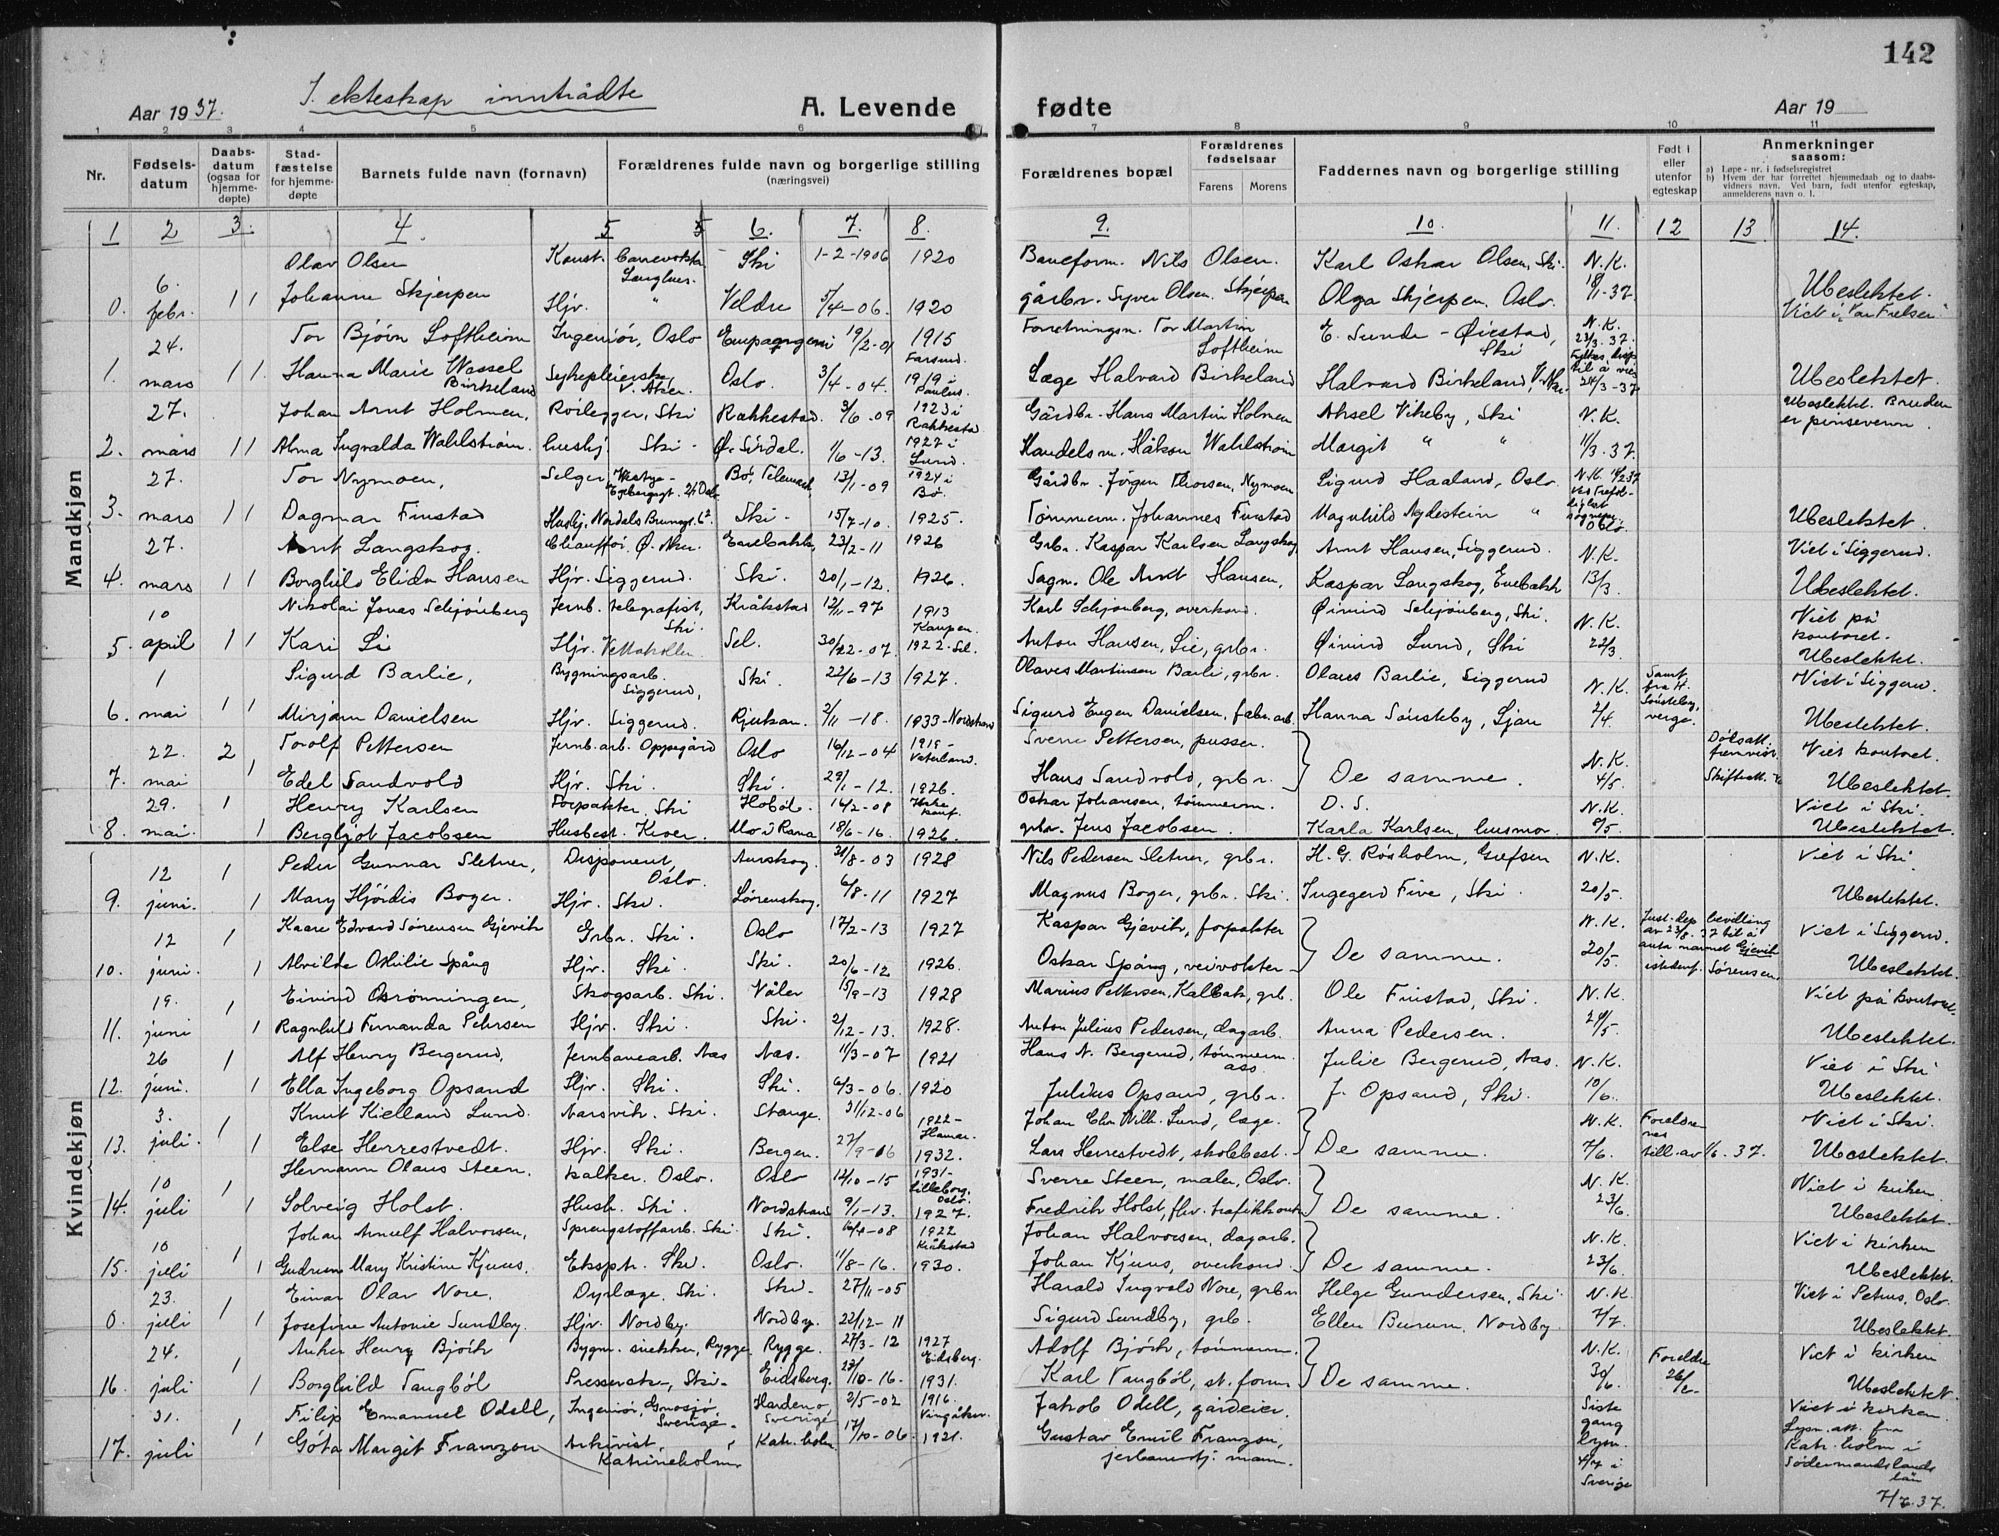 142
I. ekteskap inntrådte
Aar 1937. A. Levende fødte Aar 19
1 2 3 4 5 6 7 8 9 10 11
Nr. Fødsels-datum Daabs-datum (ogsaa for hjemme-døpte) Stad-fæstelse for hjemme-døpte Barnets fulde navn (fornavn) Forældrenes fulde navn og borgerlige stilling (næringsvei) Forældrenes bopæl Forældrenes fødselsaar Farens Morens Faddernes navn og borgerlige stilling Født i eller utenfor egteskap Anmerkninger saasom:
a) Løpe-nr. i fødselsregistret
b) Hvem der har forrettet hjemmedaab og to daabs-vidners navn. Ved barn, født utenfor egteskap, anmelderens navn o. l.
1 2 3. 4. 5 6. 7. 8. 9. 10. 11. 12 13 14.
Mandkjøn
Kvindekjøn
6. Olav Olsen Ski 1-2-1906 1920 Baneform. Nils Olsen. Karl Oskar Olsen, Ski. N.K.
0. febr. 1 1 Johanne Skjerpen Hjv. " Veldre 5/4-06. 1920 gårbr. Syver Olsen Skjerpen Olga Skjerpen, Oslo. Ubeslektet.
24. Tor Bjørn Loftheim Ingeniør, Oslo 19/2-01 1915 Forretningsm. Tor Martin Loftheim E. Sunde-Øiestad, Ski N.K. 23/3-37.
1. mars 1 1. Hanna Marie Wessel Birkeland Sykepleierske V. Aker. Oslo. 3/4-04. 1919 i Læge Halvard Birkeland Halvard Birkeland, V. Aker 24/3-37 Ubeslektet.
27. Johan Arnt Holmen, Rørlegger, Ski Rakkestad. 3/6-09 1923 i Rakkestad Gårdbr. Hans Martin Holmen Aksel Vikeby, Ski N.K. Ubeslektet. Bruden er pinsevenn.
2. mars 1 1 Alma Ingvalda Wahlstrøm. Ski. Ø. Sirdal. 1/6-13. 1927 i Lund. Handelsm. Håkon Wahlstrøm Margit " " 11/3-37.
27. Tor Nymoen, Selger, Bø, Telemark 13/1-09 1924 i Bø. Gårdbr. Jørgen Thorsen, Nymoen Sigurd Haaland, Oslo N.K.
3. mars 1 1 Dagmar Finstad Ski. 15/7-10. 1925. Tømmerm. Johannes Finstad Magnhild Nydestein " Ubeslektet.
27. Arnt Langskog. Chauffør, Ø. Aker. Enebakk 23/2-11 1926 Grbr. Kaspar Karlsen Langskog Arnt Hansen, Siggerud. N.K. Viet i Siggerud.
4. mars 1 1 Borghild Elida Hansen Hjv. Siggerud. Ski. 20/1-12. 1926. Sagm. Ole Arnt Hansen, Kaspar Langskog, Enebakk 13/3 Ubeslektet.
10 Nikolai Jonas Schjønberg Jernb. telegrafist, Ski. Kråkstad 12/11-97 1913 Karl Schjønberg, overkond. Øivind Schjønberg, Ski. N.K. Viet på kontoret.
5. april 1 1 Kari Li Hjv. Vettakollen Sel. 30/22-07. 1922-Sel. Anton Hansen, Lie, grbr. Øivind Lund, Ski 22/3 Ubeslektet.
1 Sigurd Barlie, Bygningsarb. Siggerud, Ski. 22/6-13 1927. Olaves Martinsen Barli, grbr. Olaus Barlie, Siggerud N.K. Samt. fra H. Sønsteby, verge. Viet i Siggerud.
6. mai 1 1 Mirjam Danielsen Hjv. Siggerud. Rjukan. 2/11-18. 1933-Nordstrand Sigurd Eugen Danielsen, fabr. arb. Hanna Sønsteby, Ljan 2/4. Ubeslektet.
22. 2 Torolf Pettersen Jernb. arb. Oppegård Oslo 16/12-04 1919-Vaterland. Sverre Pettersen, pusser. N.K. Viet kontoret.
7. mai 1 Edel Sandvold Hjv. Ski. Ski. 29/1-12. 1926. Hans Sandvold, grbr. De samme. 4/5 Ubeslektet.
29. 1 Henry Karlsen Forpakter, Ski Hobøl. 16/2-08 Oskar Johansen, tømmerm. D.S. N.K. Viet i Ski.
8. mai. 1 Bergljot Jacobsen Husbest. Kiver. Mo i Rana 18/6-16. 1926. grbr. Jens Jacobsen. Karla Karlsen, husmor. 8/5 Ubeslektet.
12 1 Peder Gunnar Sletner, Disponent, Oslo. Aurskog. 31/8-03 1928 Nils Pedersen Sletner, grbr. H. G. Røsholm, Grefsen N.K. Viet i Ski.
9. juni. 1 Mary Hjørdis Boger. Hjv. Ski. Lørenskog. 6/8-11 1927 Magnus Boger, grbr. Ski Ingegerd Five, Ski. 20/5. Ubeslektet.
12 1 Kaare Edvard Sørensen Gjevik Grbr. Ski. Oslo 17/2-13 1927 Kaspar Gjevik, forpakter N.K. Just.dep. bevilling av 23/8.37 til å anta navnet Gjevik istedenf. Sørensen. Viet i Siggerud.
10. juni. 1 Alvilde Othilie Spång Hjv. Ski. Ski. 20/6-12 1926. Oskar Spång, veivokter De samme. 20/5. Ubeslektet.
19. 1 Eivind Osrønningen, Skogsarb. Ski. Våler 15/9-13 1928 Marius Pettersen, Kalbak, grb. Ole Finstad, Ski. N.K. Viet på kontoret.
11. juni 1 Ragnhild Fernanda Petersen Hjv. Ski. Ski. 2/12-13. 1928. Anton Julius Pedersen, dagarb. Anna Pedersen. 29/5. Ubeslektet.
26 1 Alf Henry Bergerud, Jernbanearb. Aas Aas. 11/3-07 1921 Hans N. Bergerud, tømmerm. ass. Julie Bergerud, Aas. N.K. Viet i Ski
12. juni. 1 Ella Ingeborg Opsand Hjv. Ski. Ski. 6/3-06. 1920 Julius Opsand, grbr. J. Opsand, Ski. 10/6. Ubeslektet.
3. 1 Knut Kielland Lund. Narvik. Ski. Stange. 31/12-06 1922-Hamar. Johan Chr. Wilh. Lund, læge. N.K. Viet i Ski.
13. juli. 1 Else Herrestvedt. Hjv. Ski. Bergen. 27/9-06 1932. Lars Herrestvedt, skolebest. De samme. 7/6. till. av 1/6.37. Ubeslektet.
10 1 Hermann Olaus Steen. kalker. Oslo. Oslo 12/10-15 1931-Lilleborg, Oslo. Sverre Steen, maler, Oslo. N.K. Viet i kirken.
14. juli 1 Solveig Holst. Hush. Ski. Nordstrand 9/1-13. 1927. Fredrik Holst, De samme. 23/6. Ubeslektet.
10 1 Johan Arnulf Halvorsen, Sprengstoffarb. Ski. Ski. 16/4-08 1922 Kråkstad Johan Halvorsen, dagarb. N.K. Viet i kirken
15. juli 1 Gudrun Mary Kristine Kjuus. Eksptr. Ski. Oslo. 11/8-16. 1930. Johan Kjuus, overkond. De samme. 23/6. Ubeslektet.
23. 1 Einar Olav Nore. Dyrlæge, Ski. Ski. 27/11-05 Harald Ingvold Nore, grbr. Helge Gundersen, Ski N.K. Viet i Petrus, Oslo.
0. juli 1 Josefine Antonie Sundby. Hjv. Nordby. Nordby. 22/12-11 Sigurd Sundby, grb. Ellen Burum, Nordby 7/7. Ubeslektet.
24. 1 Anker Henry Bjørk Bygn. snekker, Rygge Rygge. 27/3-12 1927 Eidsberg. Adolf Bjørk, tømmerm. N.K. Viet i kirken
16. juli 1 Borghild Tangbøl Ski. Eidsberg. 1931. Karl Tangbøl, De samme. 30/6. Ubeslektet.
31. 1 Filip Emanuel Odell, Ingeniør, Gnosjø, Sverige. Sverige 2/5-02 1916. Vingåker. Jakob Odell, gårdeier. Siste gang lysn. i Sverige Viet i kirken.
17. juli 1 Göta Margit Franzon Arkivist, Katrineholm Katr. holm 17/10-06. 1921. Gustav Emil Franzon, Lysn. att. fra Katr. holm i Södermanslands län 7/7.37.